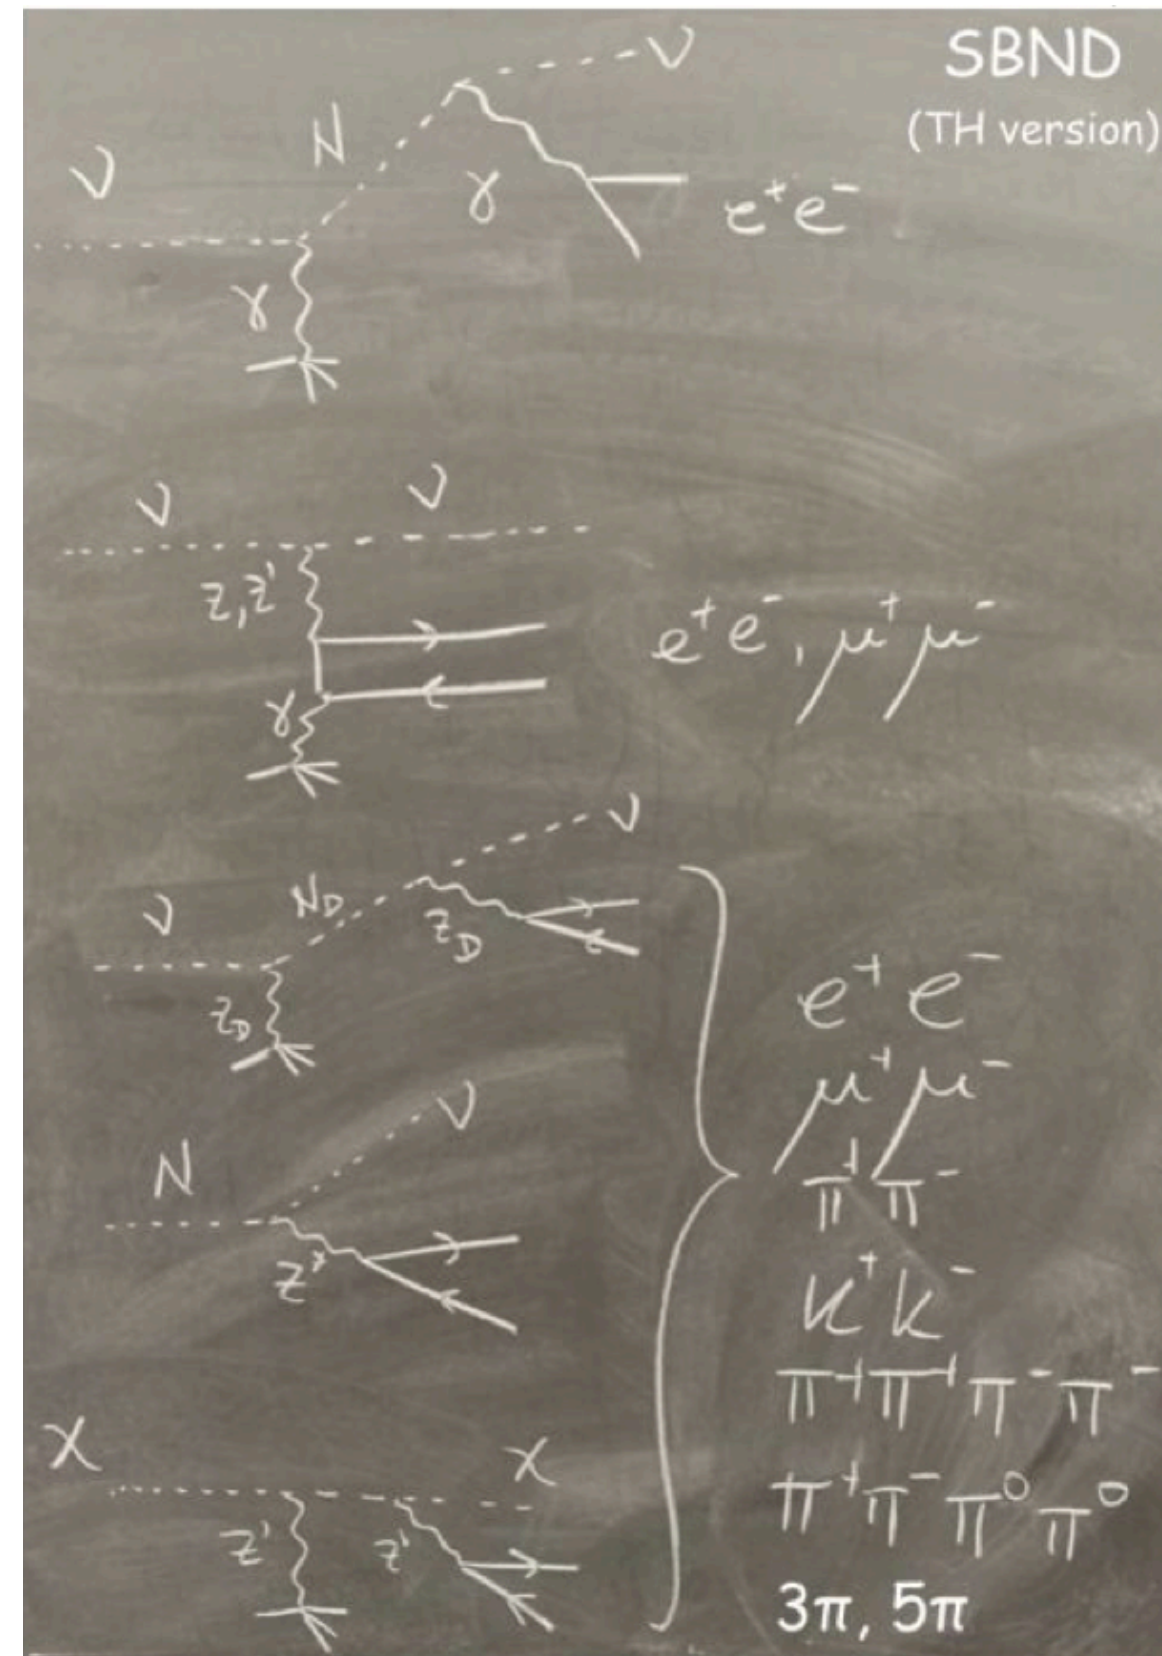 SBND
(TH version)
ν
N
ν
γ
γ
e⁺e⁻
ν
ν
Z,Z'
γ
e⁺e⁻, μ⁺μ⁻
ν
N_D
ν
Z_D
Z_D
N
ν
Z*
χ
χ
Z'
Z'
e⁺e⁻
μ⁺μ⁻
π⁺π⁻
K⁺K⁻
π⁺π⁺π⁻π⁻
π⁺π⁻π⁰π⁰
3π, 5π